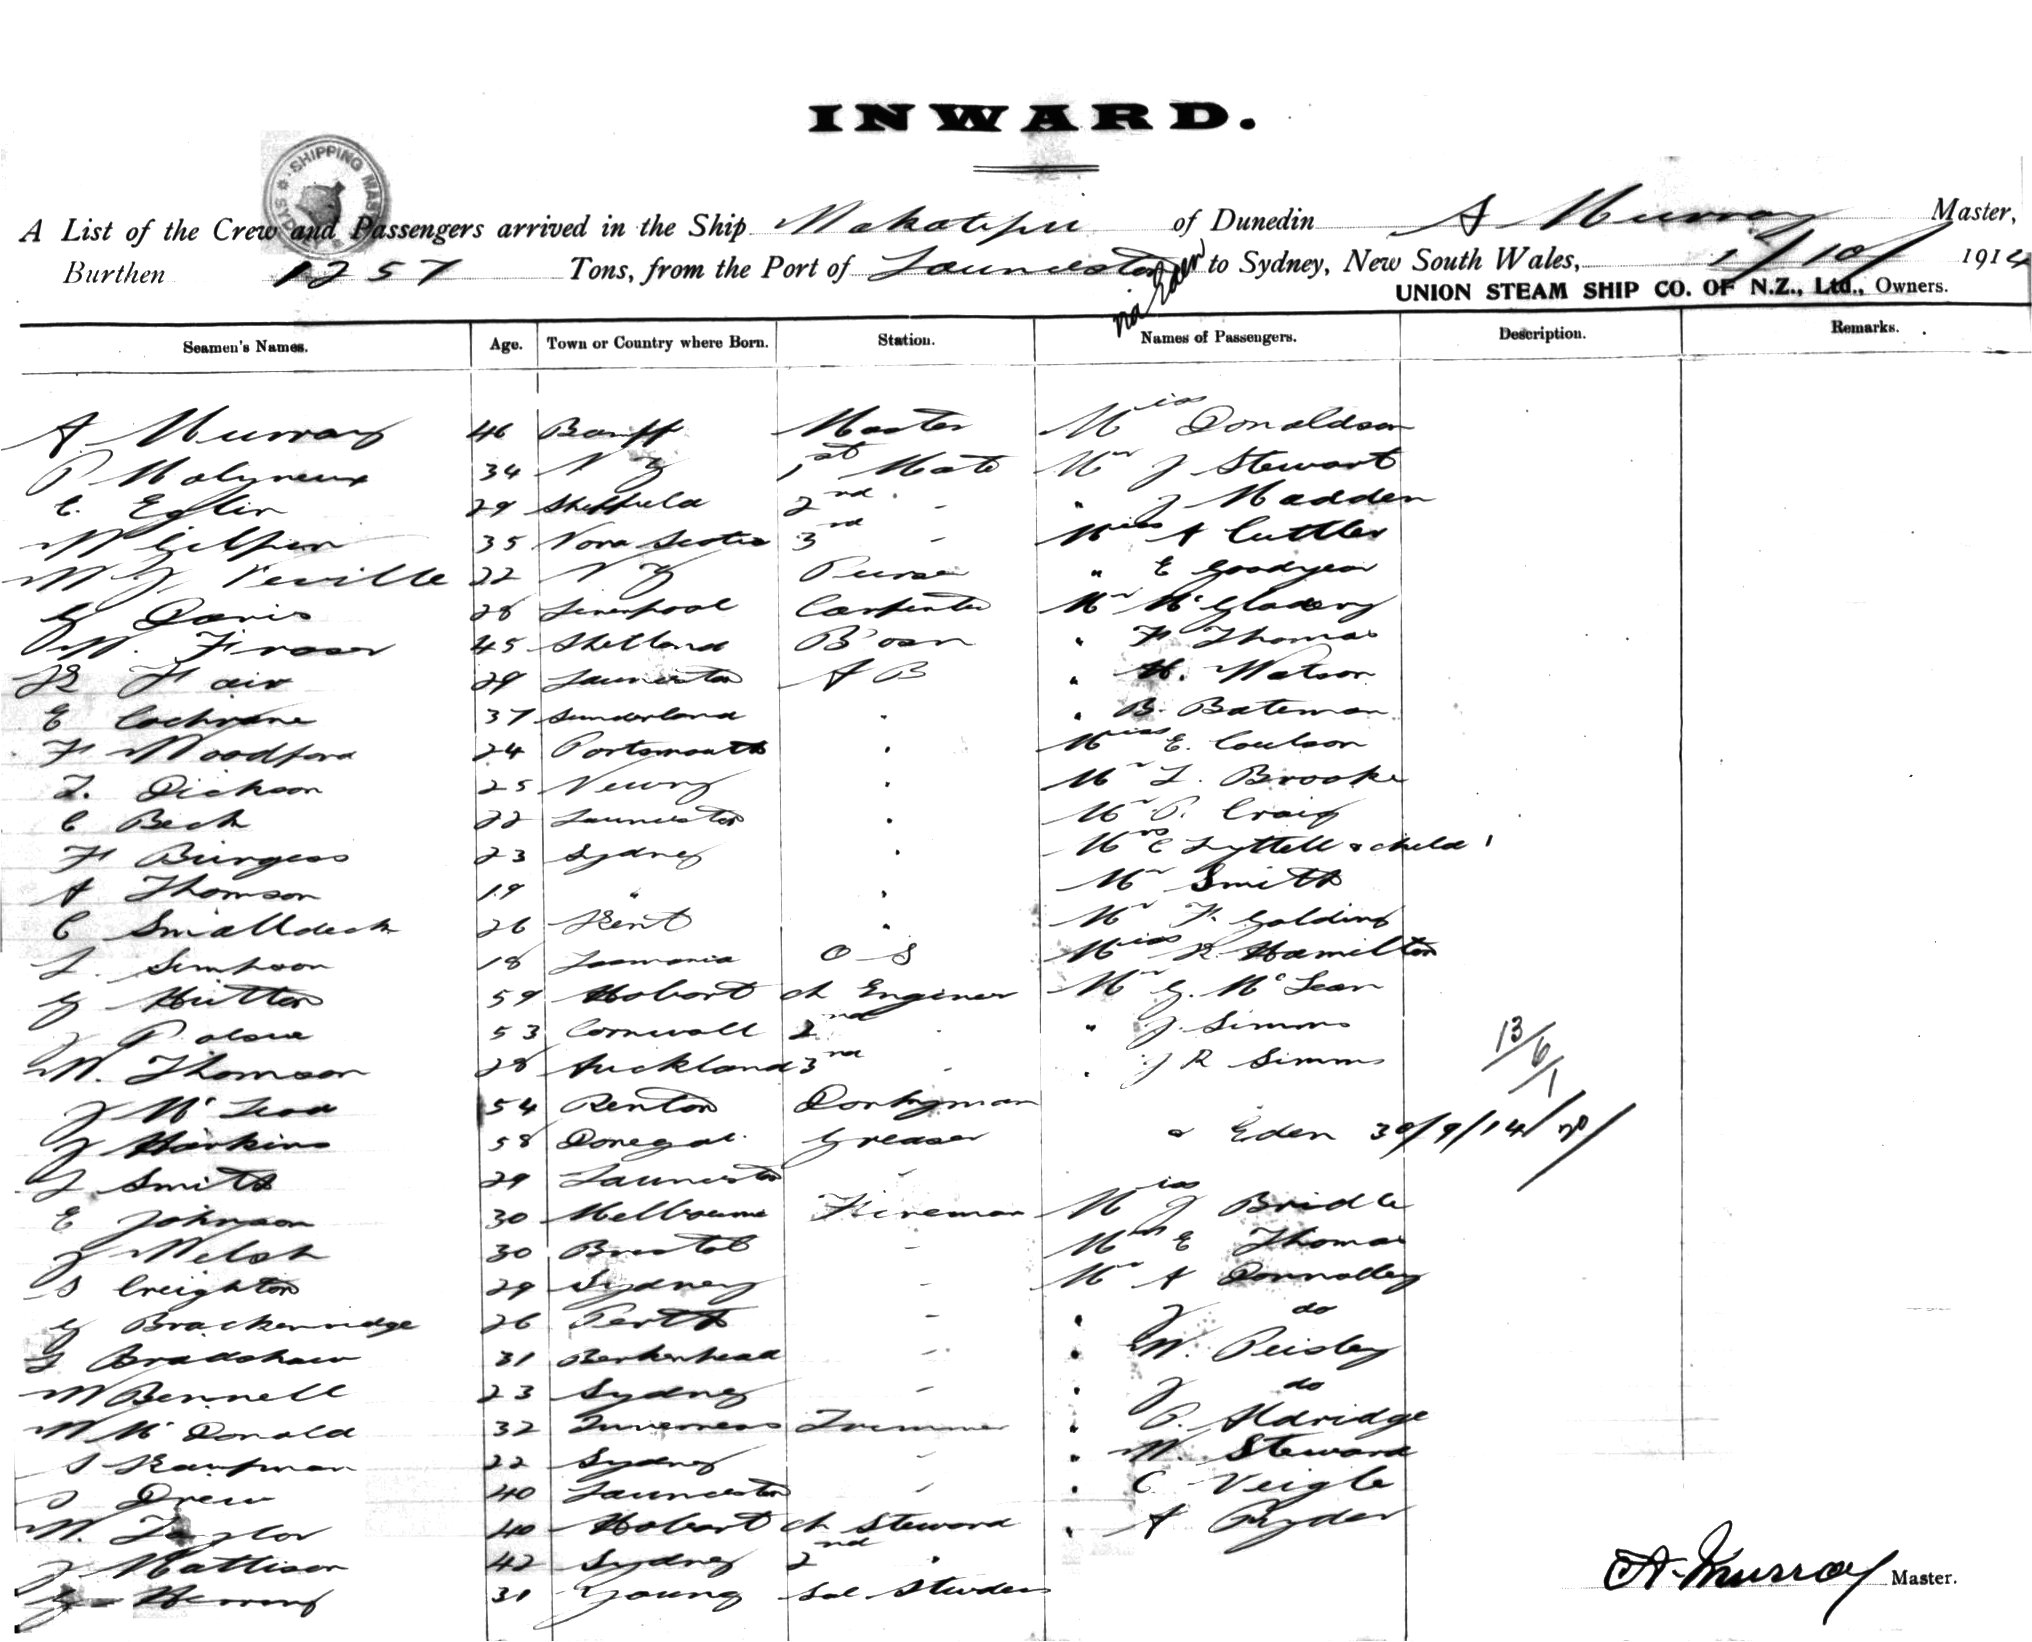 INWARD.
SHIPPING MAS
A List of the Crew and Passengers arrived in the Ship Wakatipu of Dunedin A Murray Master,
Burthen 1257 Tons, from the Port of Launceston via Eden to Sydney, New South Wales, 1/10/ 1914
UNION STEAM SHIP CO. OF N.Z., Ltd., Owners.
Seamen's Names. Age. Town or Country where Born. Station. Names of Passengers. Description. Remarks.
A Murray 46 Banff Master Miss Donaldson
P Molyneux 34 N Z 1st Mate Mr J Stewart
E. Eglin 29 Sheffield 2nd " " J Madden
W Gilpin 35 Nova Scotia 3rd " Miss A Cuttler
W J Neville 22 N Z Purser " E Goodyear
G Davis 28 Liverpool Carpenter Mr McGladery
W. Fraser 45 Shetland B'osn " F Thomas
Fair 29 Launceston A B " H. Watson
E Cochrane 37 Sunderland " " B. Bateman
F Woodford 24 Portsmouth " Miss E. Coulson
T. Dickson 25 Newry " Mr L. Brooke
C Beck 22 Launceston " Mr P. Craig
F Burgess 23 Sydney " Mrs C Lyttell & child 1
A Thomson 19 " " Mr Smith
C Smalldeck 26 Kent " Mr F. Golding
L. Simpson 18 Tasmania O S Miss R Hamilton
G Hutton 59 Hobart ch Engineer Mr G. McLean
J 53 Cornwall 2nd " " J. Simms
W. Thomson 28 Auckland 3rd " " J R Simms
13/6/1
J McLeod 54 Renton Donkyman
J Harkins 58 Donegal Greaser & Eden 30/9/14
J Smith 29 Launceston "
E Johnson 30 Melbourne Fireman Miss J Bridle
J Welsh 30 Bristol " Mrs E Thomas
S Creighton 29 Sydney " Mr A Donnolley
G Brackenridge 26 Perth " " J do
J Bradshaw 31 Berkenhead " " W. Peisley
W Bennell 23 Sydney " " J do
W McDonald 32 Inverness Trimmer " P. Aldridge
S Kaufman 22 Sydney " " W. Steward
S Drew 40 Launceston " " C Veigle
W. Taylor 40 Hobart ch Steward " A Ryder
J Mattison 42 Sydney 2nd "
G Herring 31 Young Sal Stwdess
A. Murray Master.